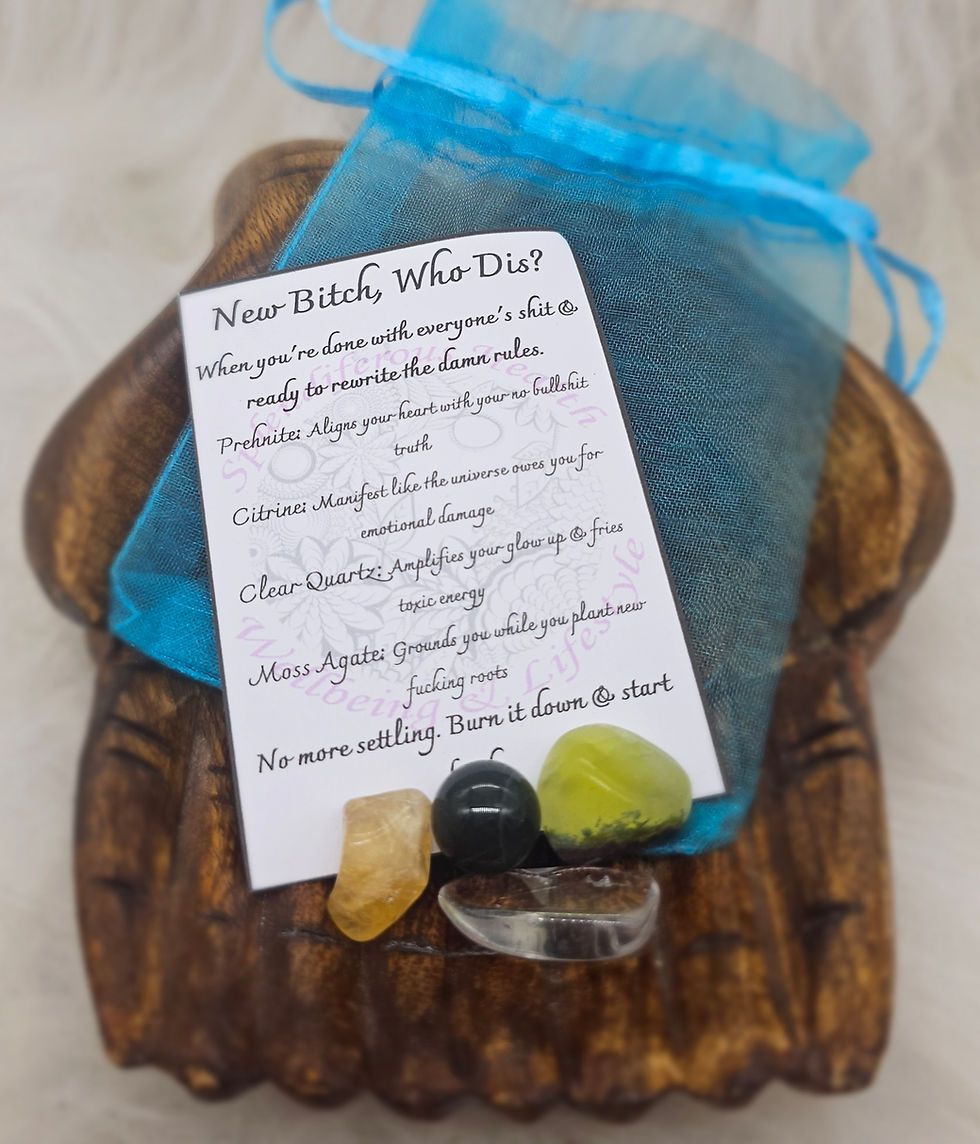 New Bitch, Who Dis?
When you're done with everyone's shit &
ready to rewrite the damn rules.
Prehnite: Aligns your heart with your no bullshit
truth
Citrine: Manifest like the universe owes you for
emotional damage
Clear Quartz: Amplifies your glow up & fries
toxic energy
Moss Agate: Grounds you while you plant new
fucking roots
No more settling. Burn it down & start
Health
Wellbeing & Lifestyle